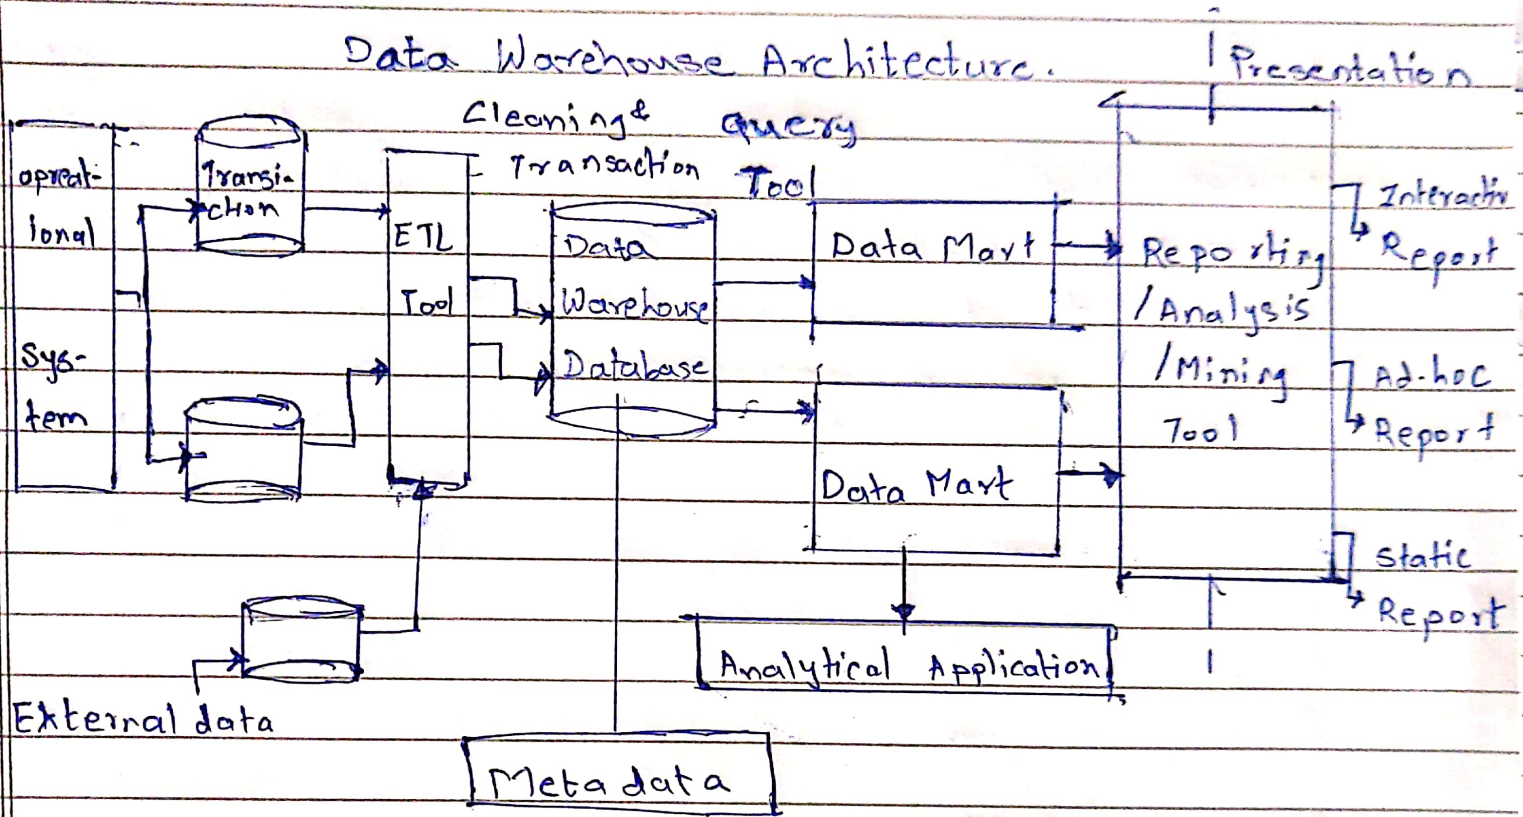 Data Warehouse Architecture.
Presentation
Cleaning &
Transaction
Query
Tool
opreat-
ional
sys-
tem
Transi-
action
ETL
Tool
Data
Warehouse
Database
Data Mart
Data Mart
Reporting
/Analysis
/Mining
Tool
Interactiv
Report
Ad-hoc
Report
Static
Report
Analytical Application
External data
Meta data